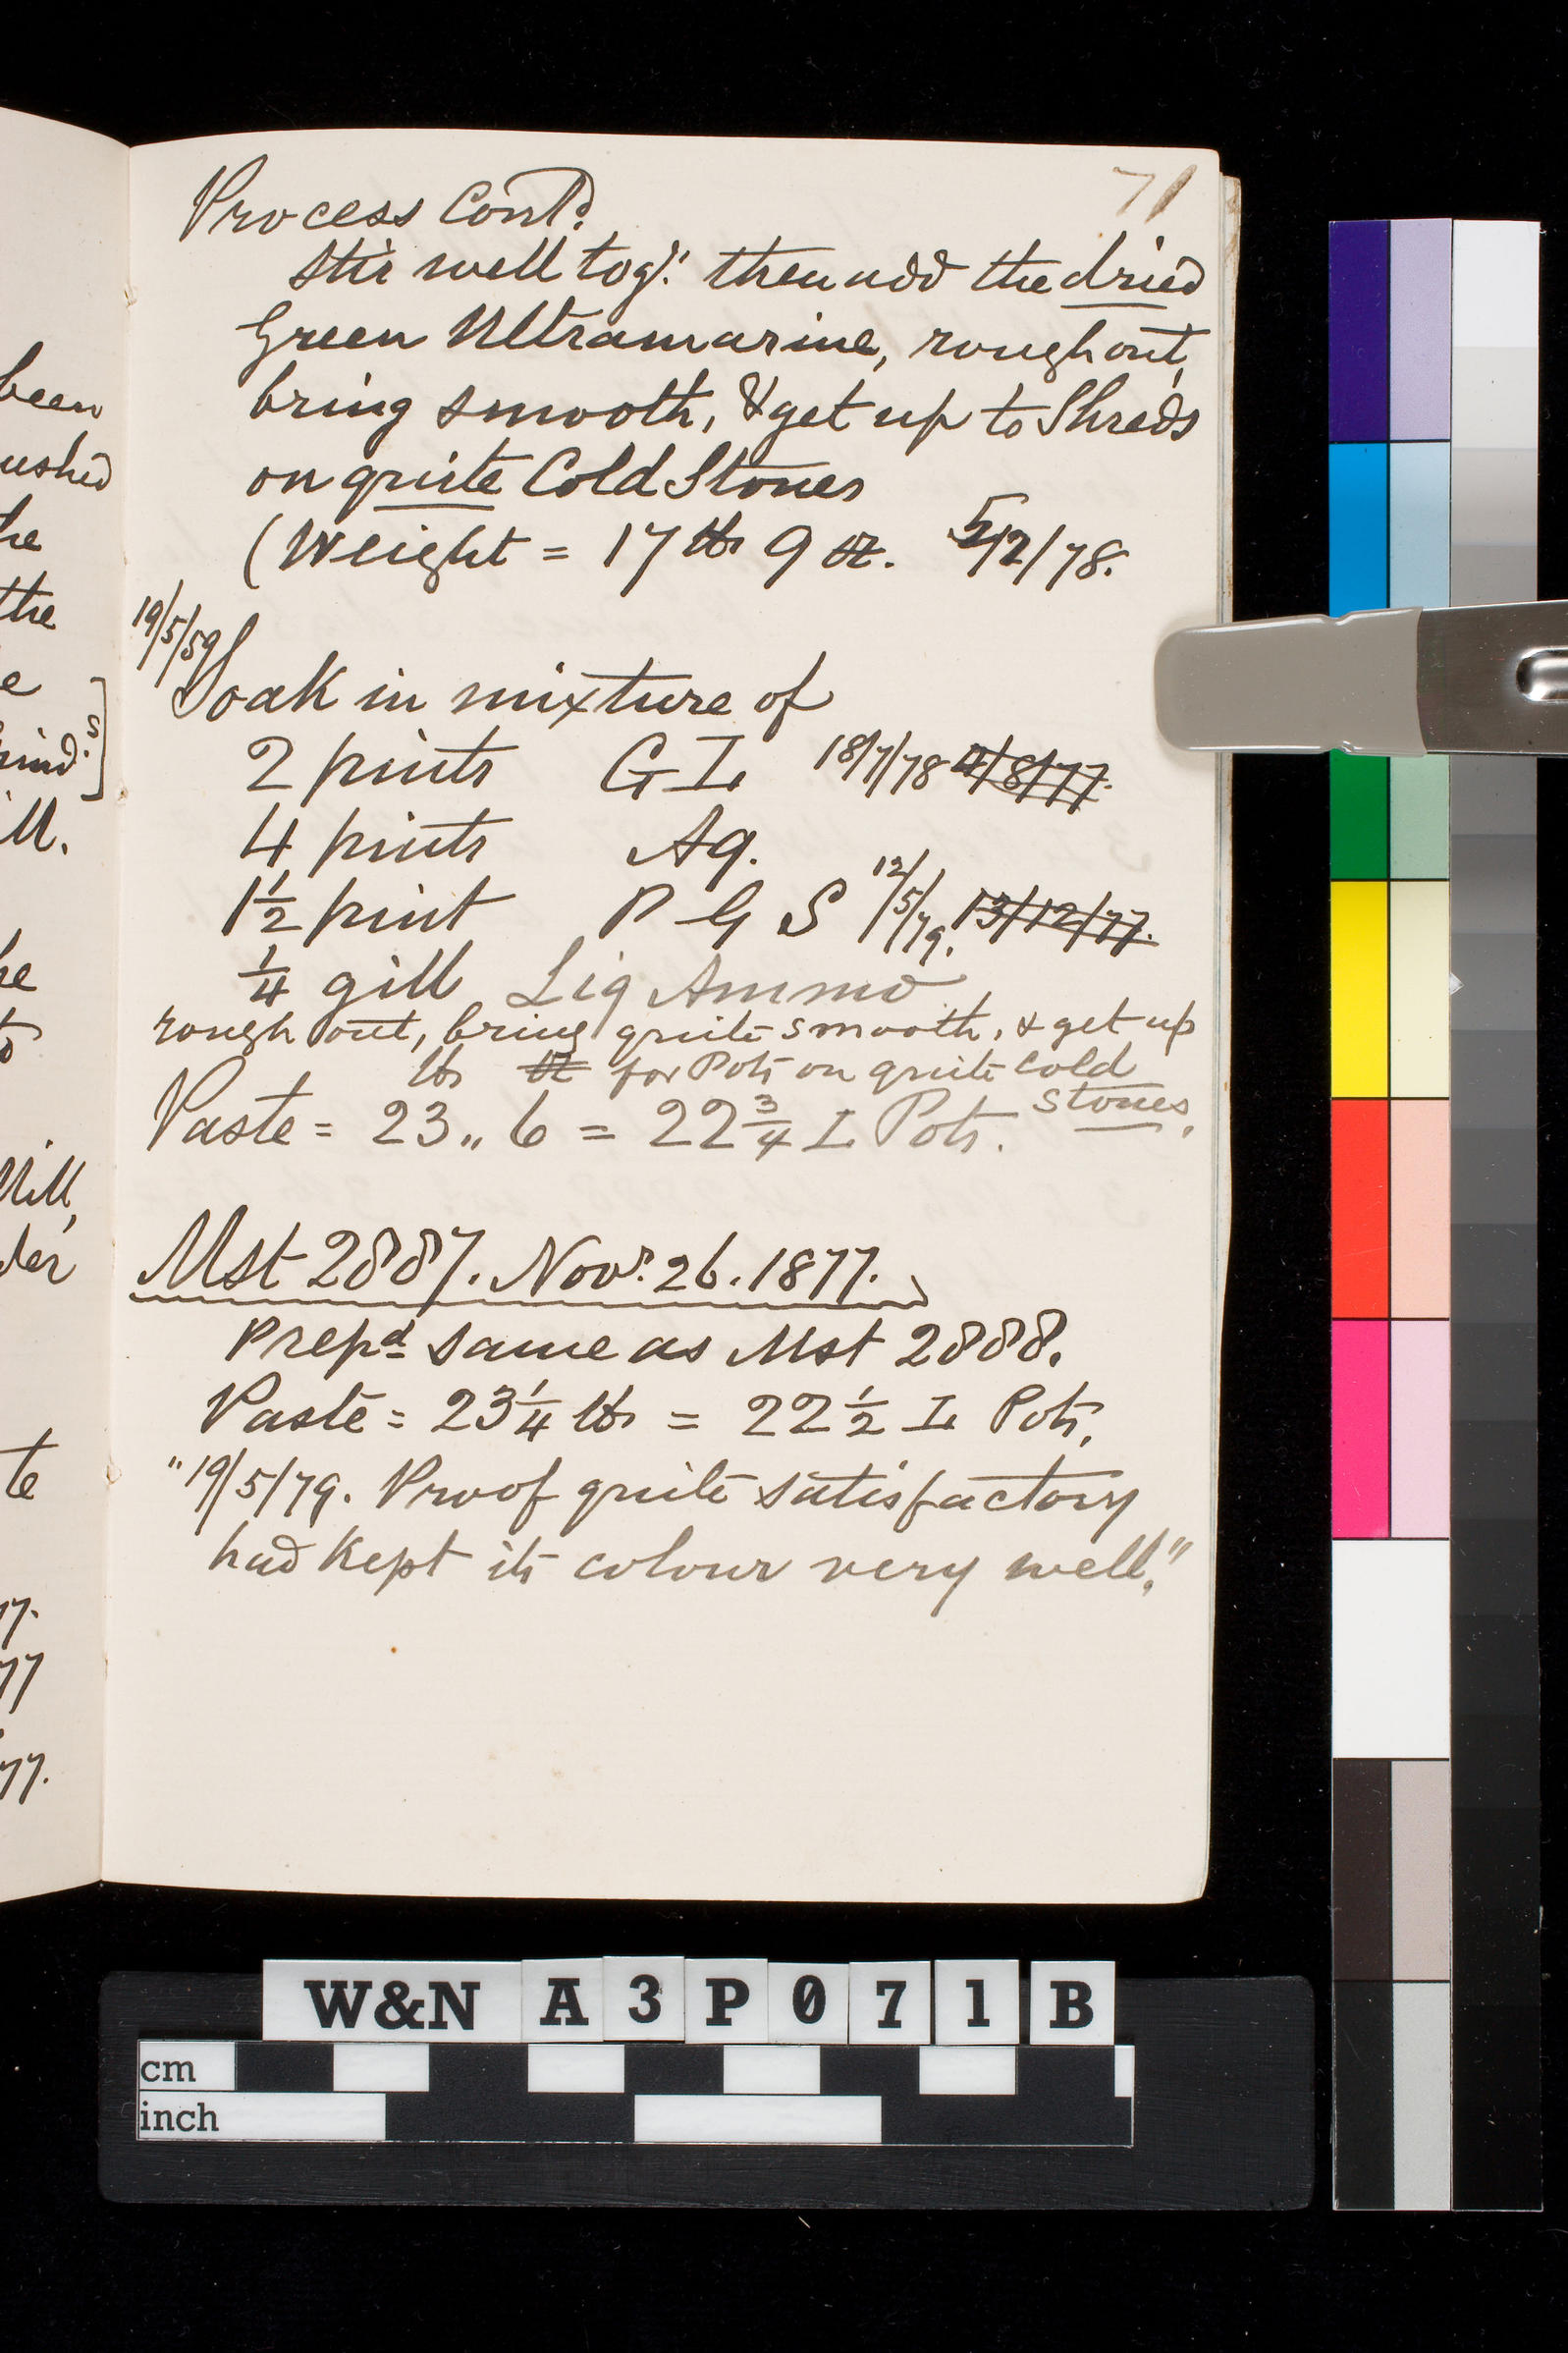 been
ushed
he
the
e
s
ind.
ill.
he
to
Mill,
der
te
17.
77
77.
71
Process Contd.
Stir well togr. then add the dried
Green Ultramarine, rough out,
bring smooth, & get up to Shreds
on quite Cold Stones
(Weight = 17 lbs 9 oz. 5/2/78.
19/5/59
Soak in mixture of
2 pints G I. 18/7/78 4/8/77.
4 pints Aq.
1½ pint P G S 12/5/79. 13/12/77.
¼ gill Liq Ammo
rough out, bring quite smooth, & get up
lbs oz for Pots on quite cold
Paste = 23 „ 6 = 22¾ I. Pots. stones.
Mst 2887. Novr. 26. 1877.
Prepd same as Mst 2888.
Paste = 23¼ lbs = 22½ I. Pots.
"19/5/79. Proof quite satisfactory
had kept its colour very well."
W&N A 3 P 0 7 1 B
cm
inch